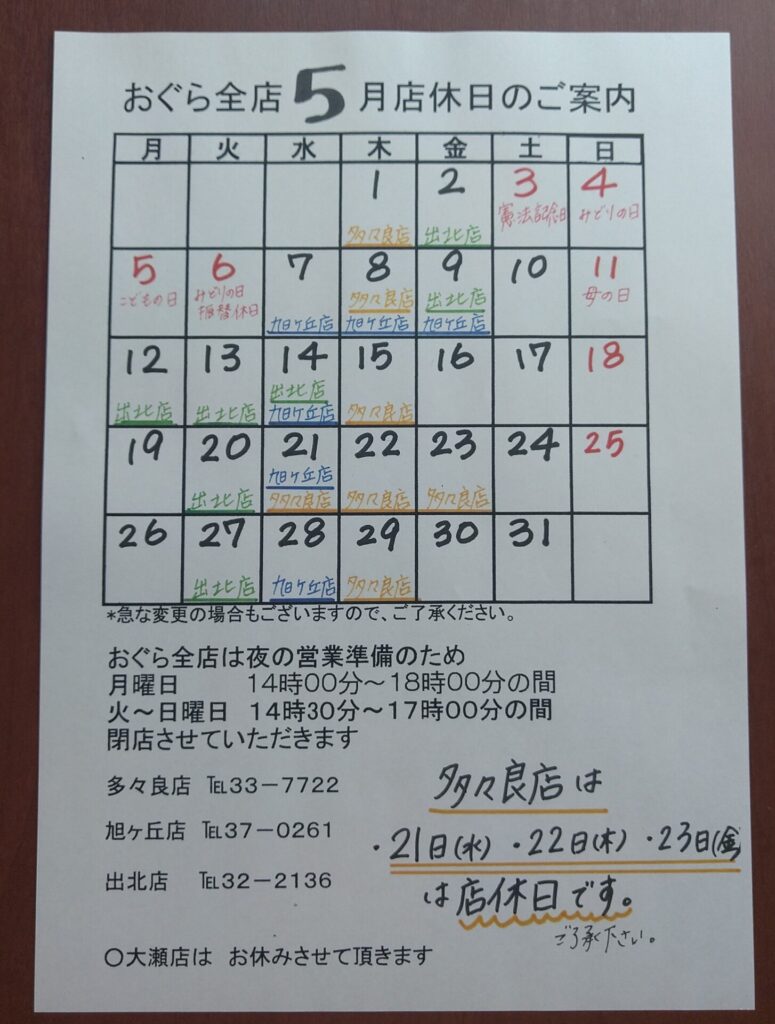 おぐら全店 5 月店休日のご案内
月 火 水 木 金 土 日
1 2 3 4
憲法記念日 みどりの日
多々良店 出北店
5 6 7 8 9 10 11
こどもの日 みどりの日 振替休日 多々良店 出北店 母の日
旭ヶ丘店 旭ヶ丘店 旭ヶ丘店
12 13 14 15 16 17 18
出北店
出北店 出北店 旭ヶ丘店 多々良店
19 20 21 22 23 24 25
旭ヶ丘店
出北店 多々良店 多々良店 多々良店
26 27 28 29 30 31
出北店 旭ヶ丘店 多々良店
*急な変更の場合もございますので、ご了承ください。
おぐら全店は夜の営業準備のため
月曜日 14時00分～18時00分の間
火～日曜日 14時30分～17時00分の間
閉店させていただきます
多々良店 ℡33－7722
旭ヶ丘店 ℡37－0261
出北店 ℡32－2136
多々良店は
・21日(水) ・22日(木) ・23日(金)
は店休日です。
ご了承下さい。
○大瀬店は お休みさせて頂きます